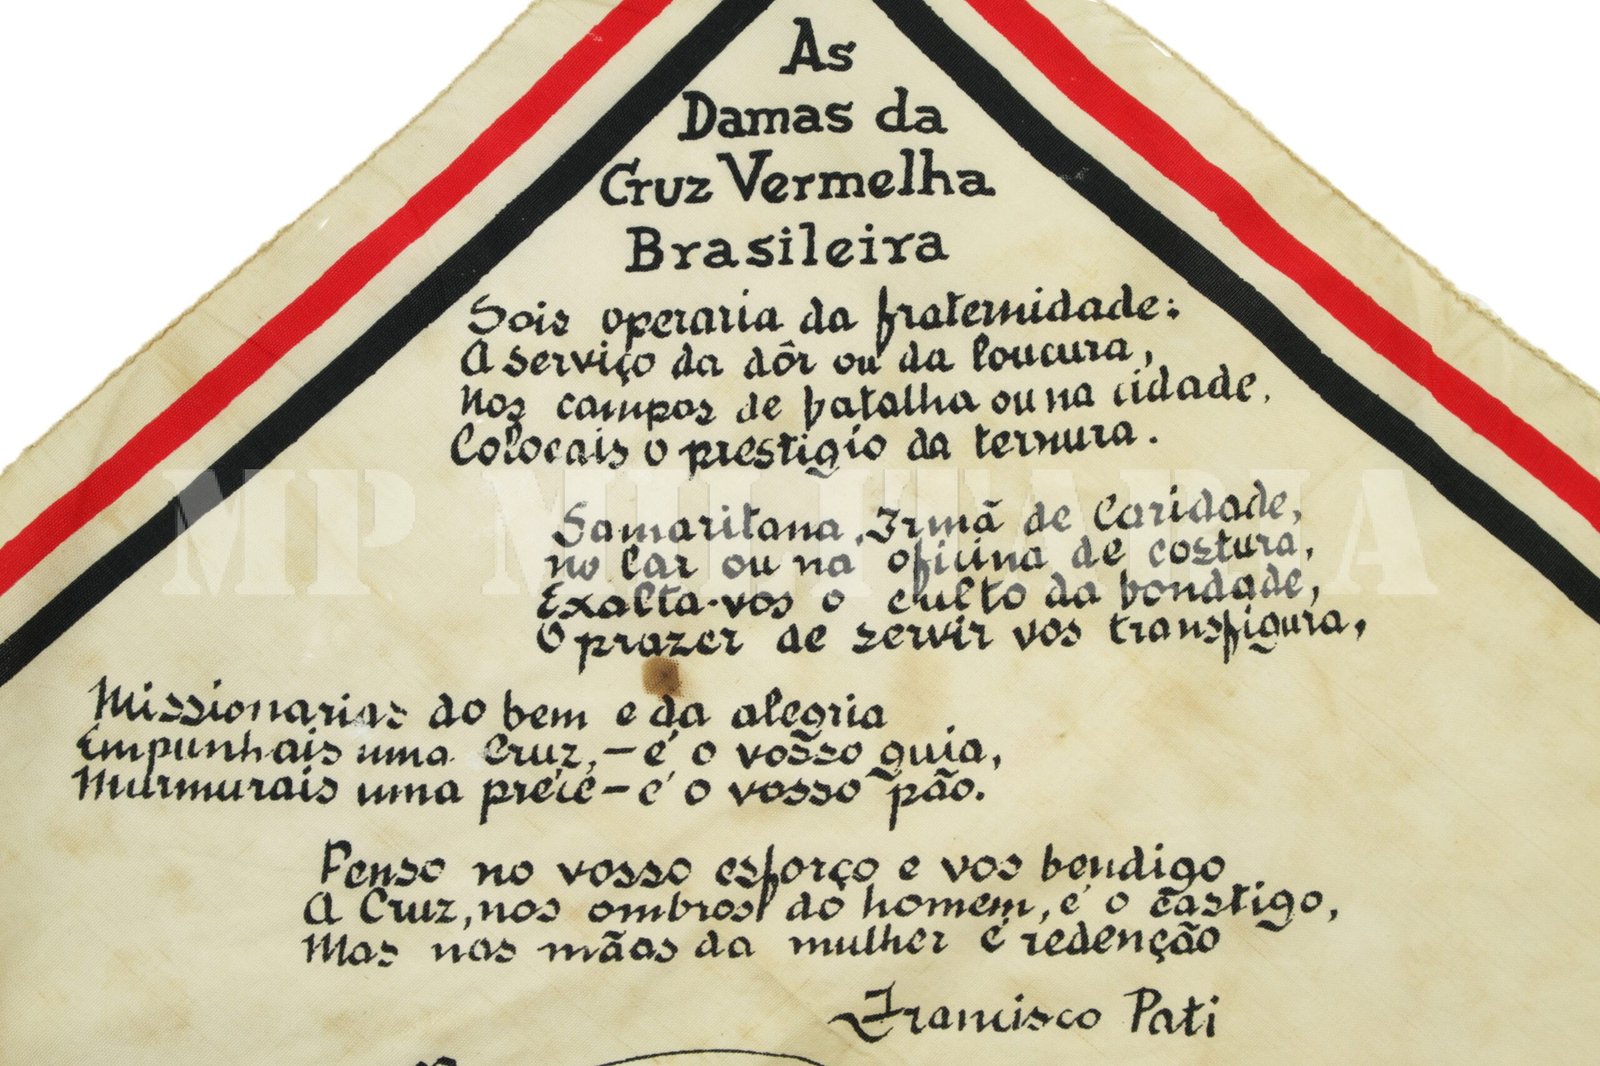 As
Damas da
Cruz Vermelha
Brasileira
Sois operaria da fraternidade:
A serviço da dôr ou da loucura,
Nos campos de batalha ou na cidade,
Colocais o prestigio da ternura.
Samaritana, Irmã de Caridade,
no lar ou na oficina de costura,
Exalta-vos o culto da bondade,
O prazer de servir vos transfigura,
Missionarias do bem e da alegria
Empunhais uma Cruz, - é o vosso guia,
Murmurais uma préce - é o vosso pão.
Penso no vosso esforço e vos bendigo
A Cruz, nos ombros do homem, é o castigo,
Mas nas mãos da mulher é redenção
Francisco Pati
MP MILITARIA